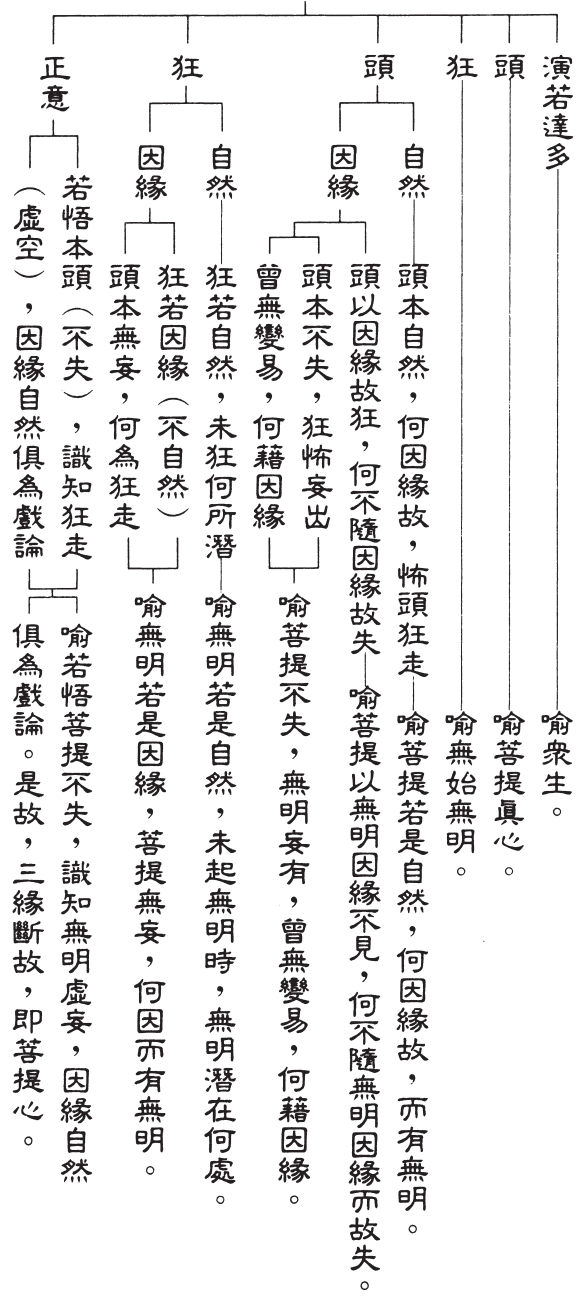 演若達多
喻衆生。
頭
喻菩提眞心。
狂
喻無始無明。
頭
自然
頭本自然，何因緣故，怖頭狂走
喻菩提若是自然，何因緣故，而有無明。
因緣
頭以因緣故狂，何不隨因緣故失
喻菩提以無明因緣不見，何不隨無明因緣而故失。
頭本不失，狂怖妄出
曾無變易，何藉因緣
喻菩提不失，無明妄有，曾無變易，何藉因緣。
狂
自然
狂若自然，未狂何所潛
喻無明若是自然，未起無明時，無明潛在何處。
因緣
狂若因緣（不自然）
頭本無妄，何為狂走
喻無明若是因緣，菩提無妄，何因而有無明。
正意
若悟本頭（不失），識知狂走
（虛空），因緣自然俱為戲論
喻若悟菩提不失，識知無明虛妄，因緣自然
俱為戲論。是故，三緣斷故，即菩提心。